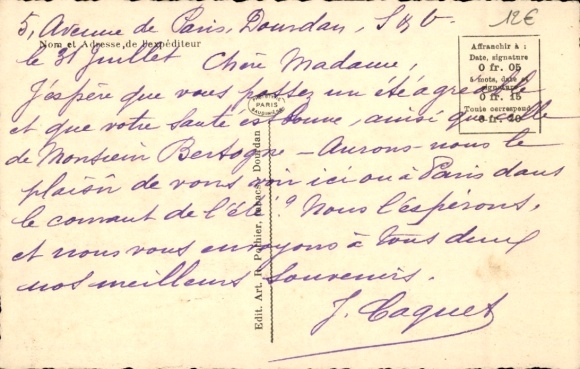 5, Avenue de Paris, Dourdan, S & O.
12€
Nom et Adresse de l'expéditeur
le 31 Juillet
Chère Madame,
J'espère que vous passez un été agréable
et que votre santé est bonne - ainsi que celle
de Monsieur Bertogne - Aurons-nous le
plaisir de vous voir ici ou à Paris dans
le courant de l'été ? Nous l'espérons,
et nous vous envoyons à tous deux
nos meilleurs souvenirs.
J. Caquet
Affranchir à :
Date, signature
0 fr. 05
5 mots, date et
signature
0 fr. 15
Toute correspond
PARIS
Edit. Art. R. Pothier, tabacs, Dourdan